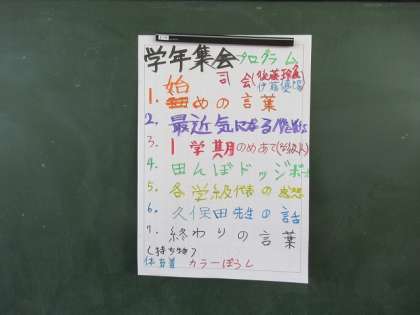 学年集会プログラム
司会(佐藤 伊藤
1. 始めの言葉
2. 最近気になる
3. 1学期のめあて(学級代
4. 田んぼドッジボー
5. 各学級代表の感想
6. 久保田先生の話
7. 終わりの言葉
(持ち物)
体育着 カラーぼうし